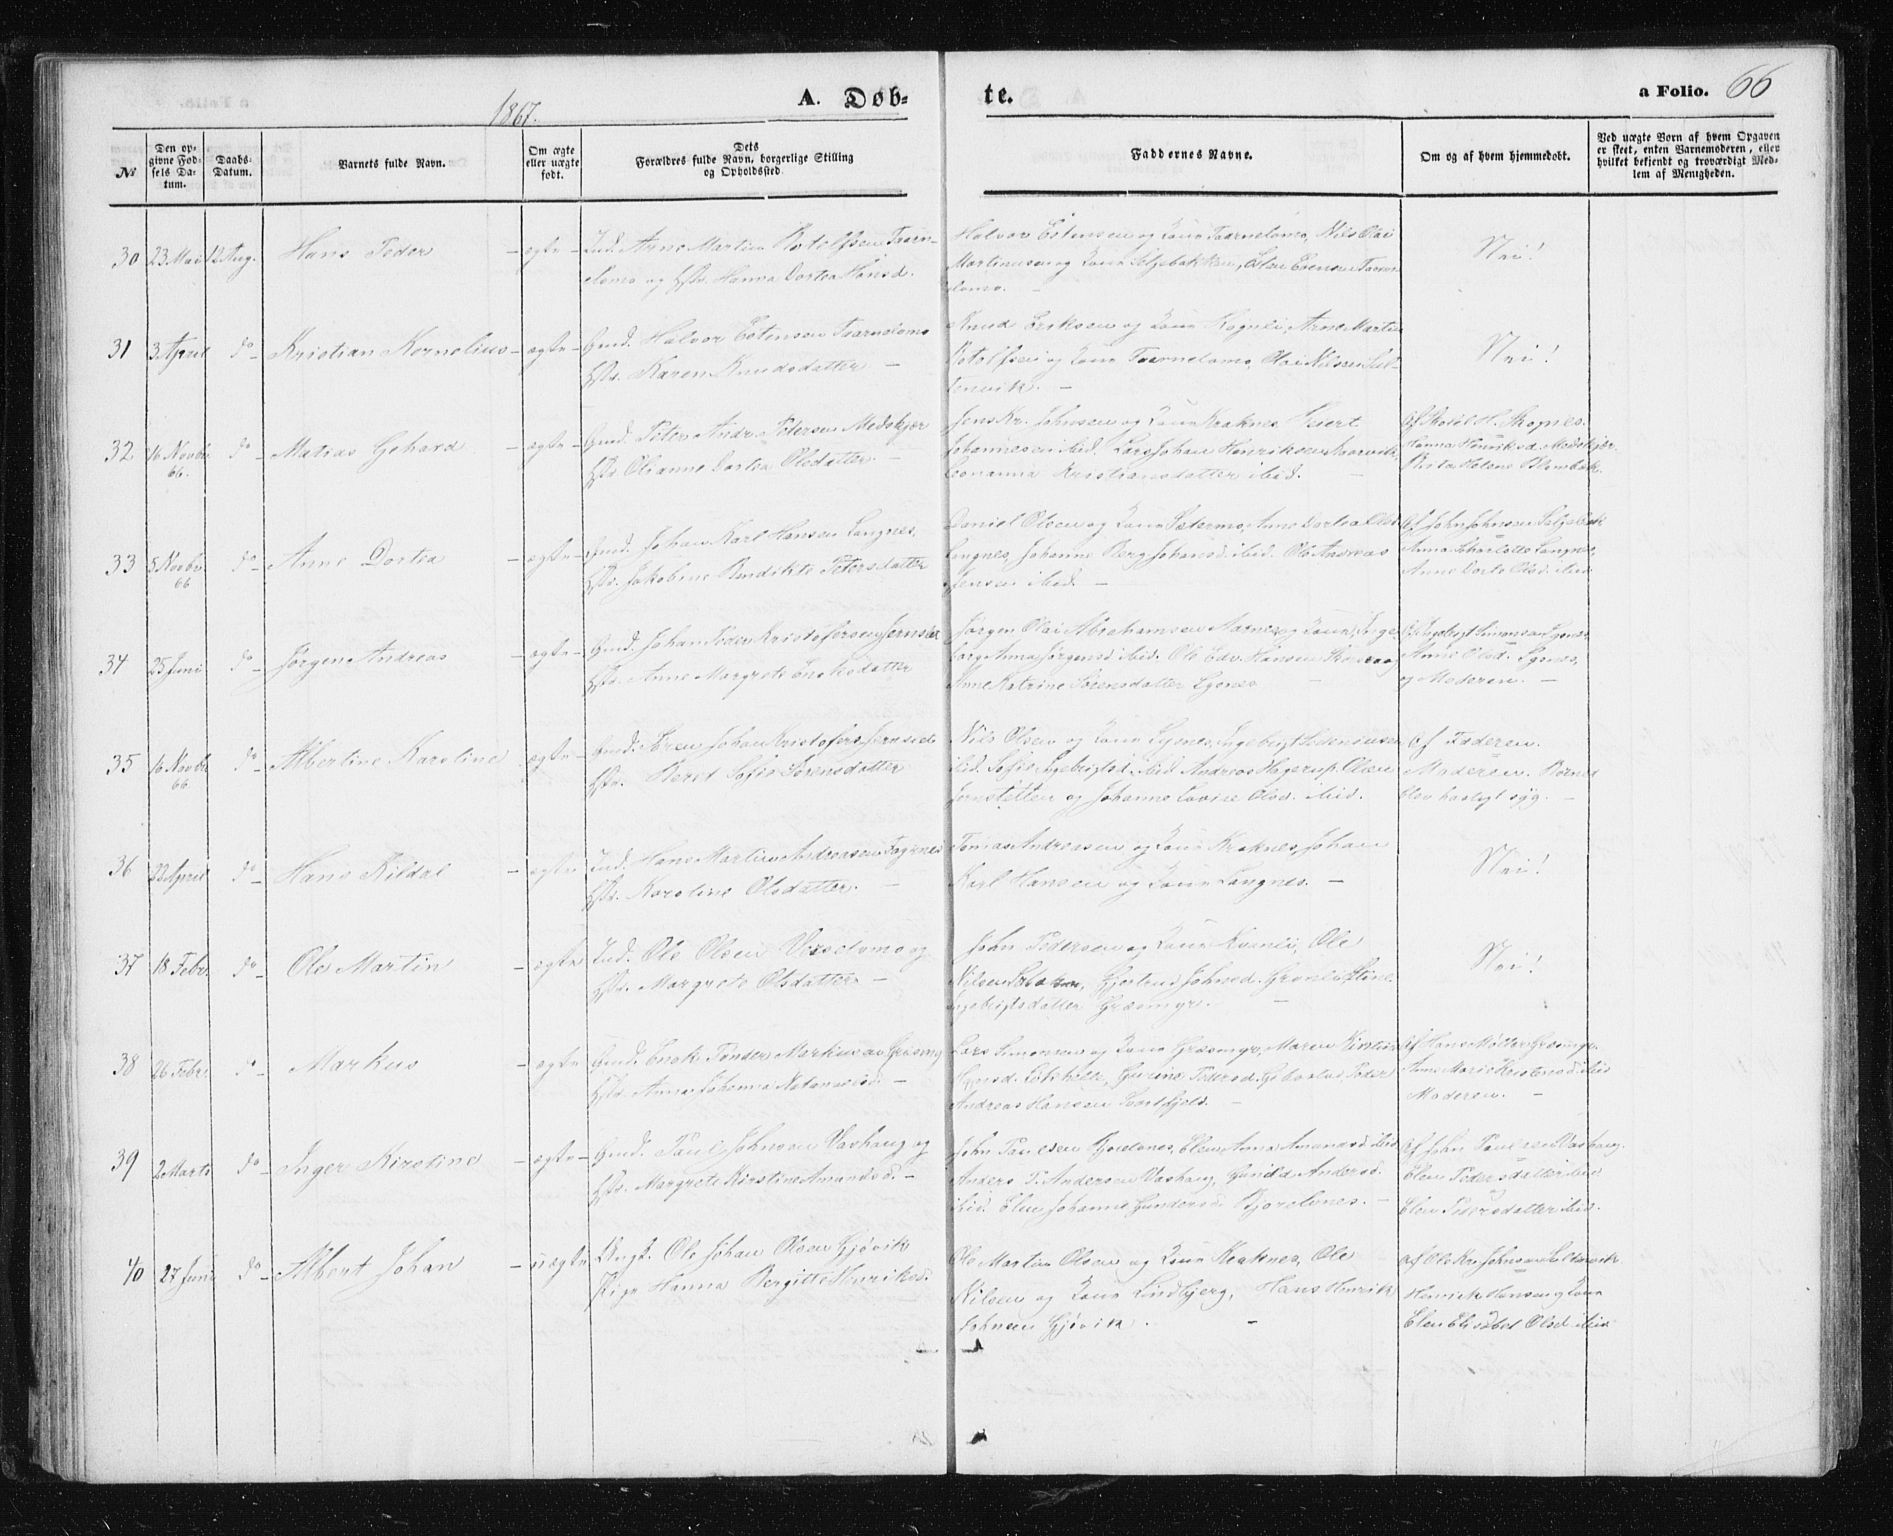 1867.
A. Døb-
te.
a Folio. 66
№
Den op-
givne Fød-
sels Da-
tum.
Daabs-
Datum.
Barnets fulde Navn.
Om ægte
eller uægte
født.
Dets
Forældres fulde Navn, borgerlige Stilling
og Opholdssted
Faddernes Navne.
Om og af hvem hjemmedøbt.
Ved uægte Børn af hvem Opgaven
er skeet, enten Barnemoderen, eller
hvilket bekjendt og troværdigt Med-
lem af Menigheden.
30 23 Mai 12 Aug. Hans Peder - ægte -
Ind. Arne Martin Rotolfsen Taarn-
elvmo og Hstr. Hanna Dortea Hansd.
Halvor Estensen og Kone Taarnelvmo, Nils Olai
Martinusen og Kone Seljebakken, Esten Evensen Taarn
elvmo. -
Nei!
31 3 April do - Kristian Kornelius - ægte -
Gmd. Halvor Estensen Taarnelvmo
Hstr. Karen Knudsdatter -
Knud Eriksen og Kone Kognli, Arne Martin
Rotolfsen og Kone Taarnelvmo, Olai Nilsen Sul-
tenvik. -
Nei!
32 16 Novbr 66. do - Matias Gehard - ægte -
Gmd. Peter Andr. Petersen Medskjær
Hstr. Olianne Dortea Olsdatter -
Jens Kr. Johnsen og Kone Kraknes
Johannesen ibid. Lars Johan Henriksen
Kristiansdatter ibid. -
Hanna Henriksd. Medskjær.
33 5 Novbr 66 do - Anne Dortea - ægte -
Gmd. Johan Karl Hansen Langnes,
Hstr. Jakobine Bendikte Petersdatter
Daniel Olsen og Kone Sætermo, Anne Dortea Olsd
Langnes, Johanne Berg Johansd. ibid. Ole Andreas
Jensen ibid. -
Af John Johnsen Seljebak
Anna Scharlotte Langnes,
Anne Dorte Olsd. ibid
34 25 Juni do - Jørgen Andreas - ægte -
Gmd. Johan Peder Kristofersen Jernslet
Hstr. Anne Margrete Enoksdatter
Jørgen Olai Abrahamsen Aarnes og Kone, Inge
borg Anna Jørgensd. ibid. Ole Edv. Hansen
Anne Katrine Sørensdatter Lysnes -
Af Ingebrigt Simonsen Lysnes
Anne Olsd. Lysnes,
og Moderen. -
35 16 Novbr 66 do - Albertine Karoline - ægte -
Gmd. Søren Johan Kristofers. Jernslet
Hstr. Beret Sofie Sørensdatter
Nils Olsen og Kone Lysnes, Ingebrigt Sørensen
ibid. Sofie Ingebrigtsd. ibid. Andreas Hagerup Olsen
Jernsletten og Johanne Lovise Olsd. ibid.
Af Faderen.
Moderen. Barnet
blev hastigt syg. -
36 22 April do - Hans Kildal - ægte -
Ind. Hans Martin Andreasen Fagrnes
Hstr. Karoline Olsdatter. -
Tomas Andreasen og Kone Kraknes, Johan
Karl Hansen og Kone Langnes. -
Nei!
37 18 Febr. do - Ole Martin - ægte
Ind. Ole Olsen Varselvmo og
Hstr. Margrete Olsdatter -
John Pedersen og Kone Kvanli, Ole
Nilsen Grøbakken, Gjertrud Johnsd. Grønli, Stine
Ingebrigtsdatter Græsmyr. -
Nei!
38 26 Febr. do - Markus - ægte -
Gmd. Enok Tønder Markussen Græsmyr
Hstr. Anna Johanna Natanaelsd. -
Lars Simonsen og Kone Græsmyr, Maren Kirstine
Hansd. Gurine Pedersd. Peder
Andreas Hansen Svartfjeld. -
Af Hans Møller Græsmyr.
Anne Marie Kristensd. ibid
Moderen. -
39 2 Marts do - Inger Kirstine - ægte -
Gmd. Paul Johnsen Vashaug og
Hstr. Margrete Kirstine Amundsd. -
John Paulsen Bjorelvnes, Elen Anna Amundsd. ibid
Anders T. Andersen Vashaug, Gunilda Andersd.
ibid. Elen Johanne Gundersd. Bjorelvnes. -
Af John Paulsen Vashaug.
Elen Pedersdatter ibid
Elen Pedersdatter ibid.
40 27 Juni do - Albert Johan - uægte -
Ungk. Ole Johan Olsen Gjøvik
Pige Hanna Bergitte Henriksd.
Ole Martin Olsen og Kone Kraknes, Ole
Nilsen og Kone Lindbjerg, Hans Henrik
Johnsen Gjøvik. -
Af Ole Kr. Johnsen Sultenvik
Henrik Hansen og Kone
Elen Elisabet Olsd. ibid